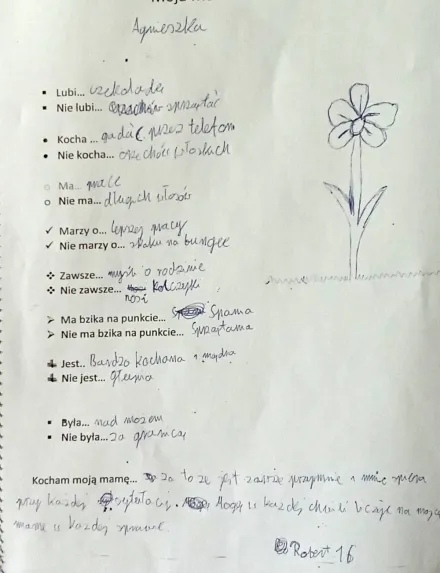 Agnieszka
Lubi... czekolade
Nie lubi... sprzątać
Kocha ... gadać przez telefon
Nie kocha... orzechów włoskich
Ma... prace
Nie ma... długich włosów
Marzy o... lepszej pracy
Nie marzy o... skoku na bungee
Zawsze... myśli o rodzinie
Nie zawsze... nosi kolczyki
Ma bzika na punkcie... Spania
Nie ma bzika na punkcie... Sprzątania
Jest.. Bardzo kochana i mądra
Nie jest... głupia
Była... nad morzem
Nie była... za granicą
Kocham moją mamę... za to że jest zawsze przy mnie i mnie spiera
przy każdej sytułacij. Mogę w każdej chwili liczyć na moją
mamę w każdej sprawie.
Robert 16